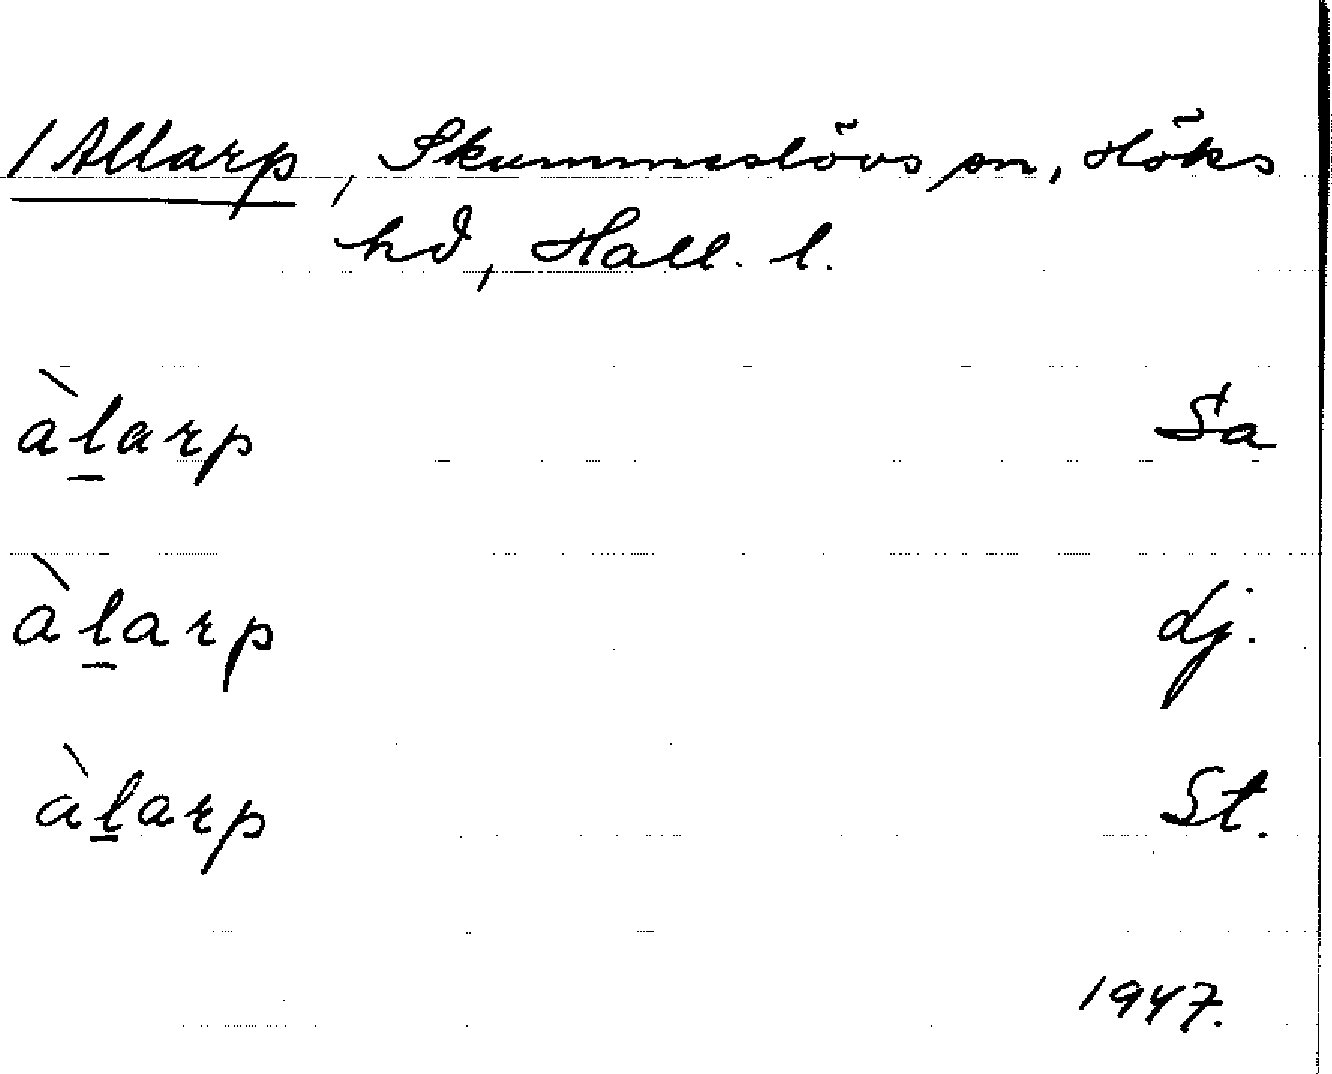 / Allarp, Skummeslövs sn, Höks
hd, Hall. l.
àl̲arp Sa
àl̲arp dj.
àl̲arp St.
1947.